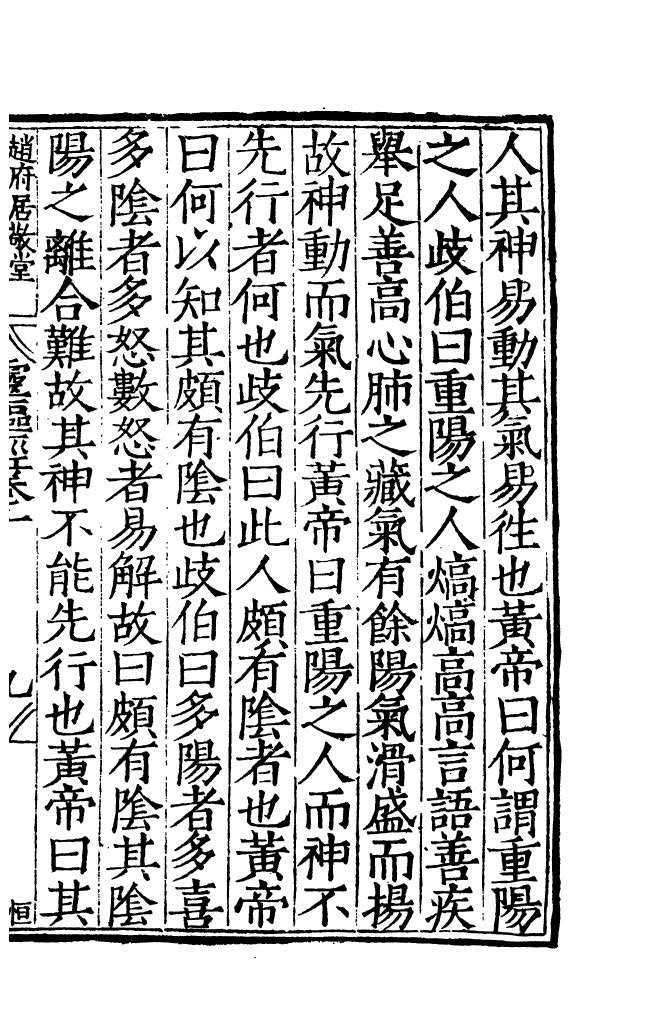 人其神易動其氣易徃也黃帝曰何謂重陽
之人歧伯曰重陽之人熇熇高高言語善疾
舉足善高心肺之藏氣有餘陽氣滑盛而揚
故神動而氣先行黃帝曰重陽之人而神不
先行者何也歧伯曰此人頗有陰者也黃帝
曰何以知其頗有陰也歧伯曰多陽者多喜
多陰者多怒數怒者易解故曰頗有陰其陰
陽之離合難故其神不能先行也黃帝曰其
趙府居敬堂
恒